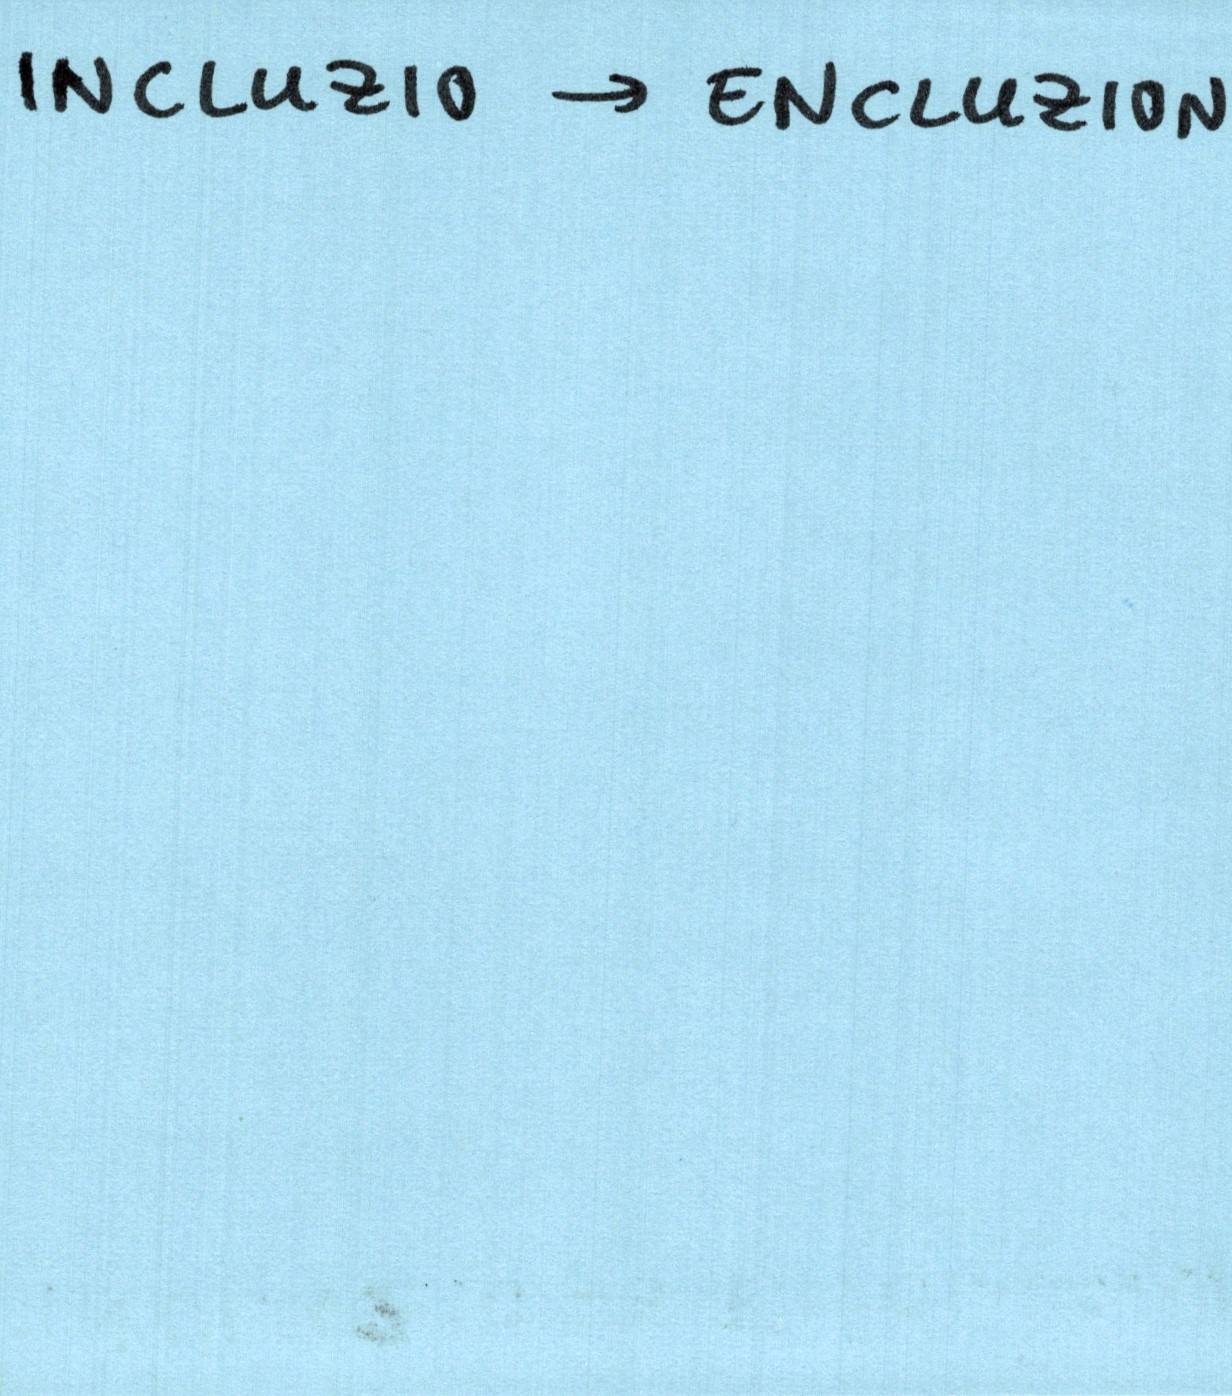 INCLUZIO → ENCLUZION